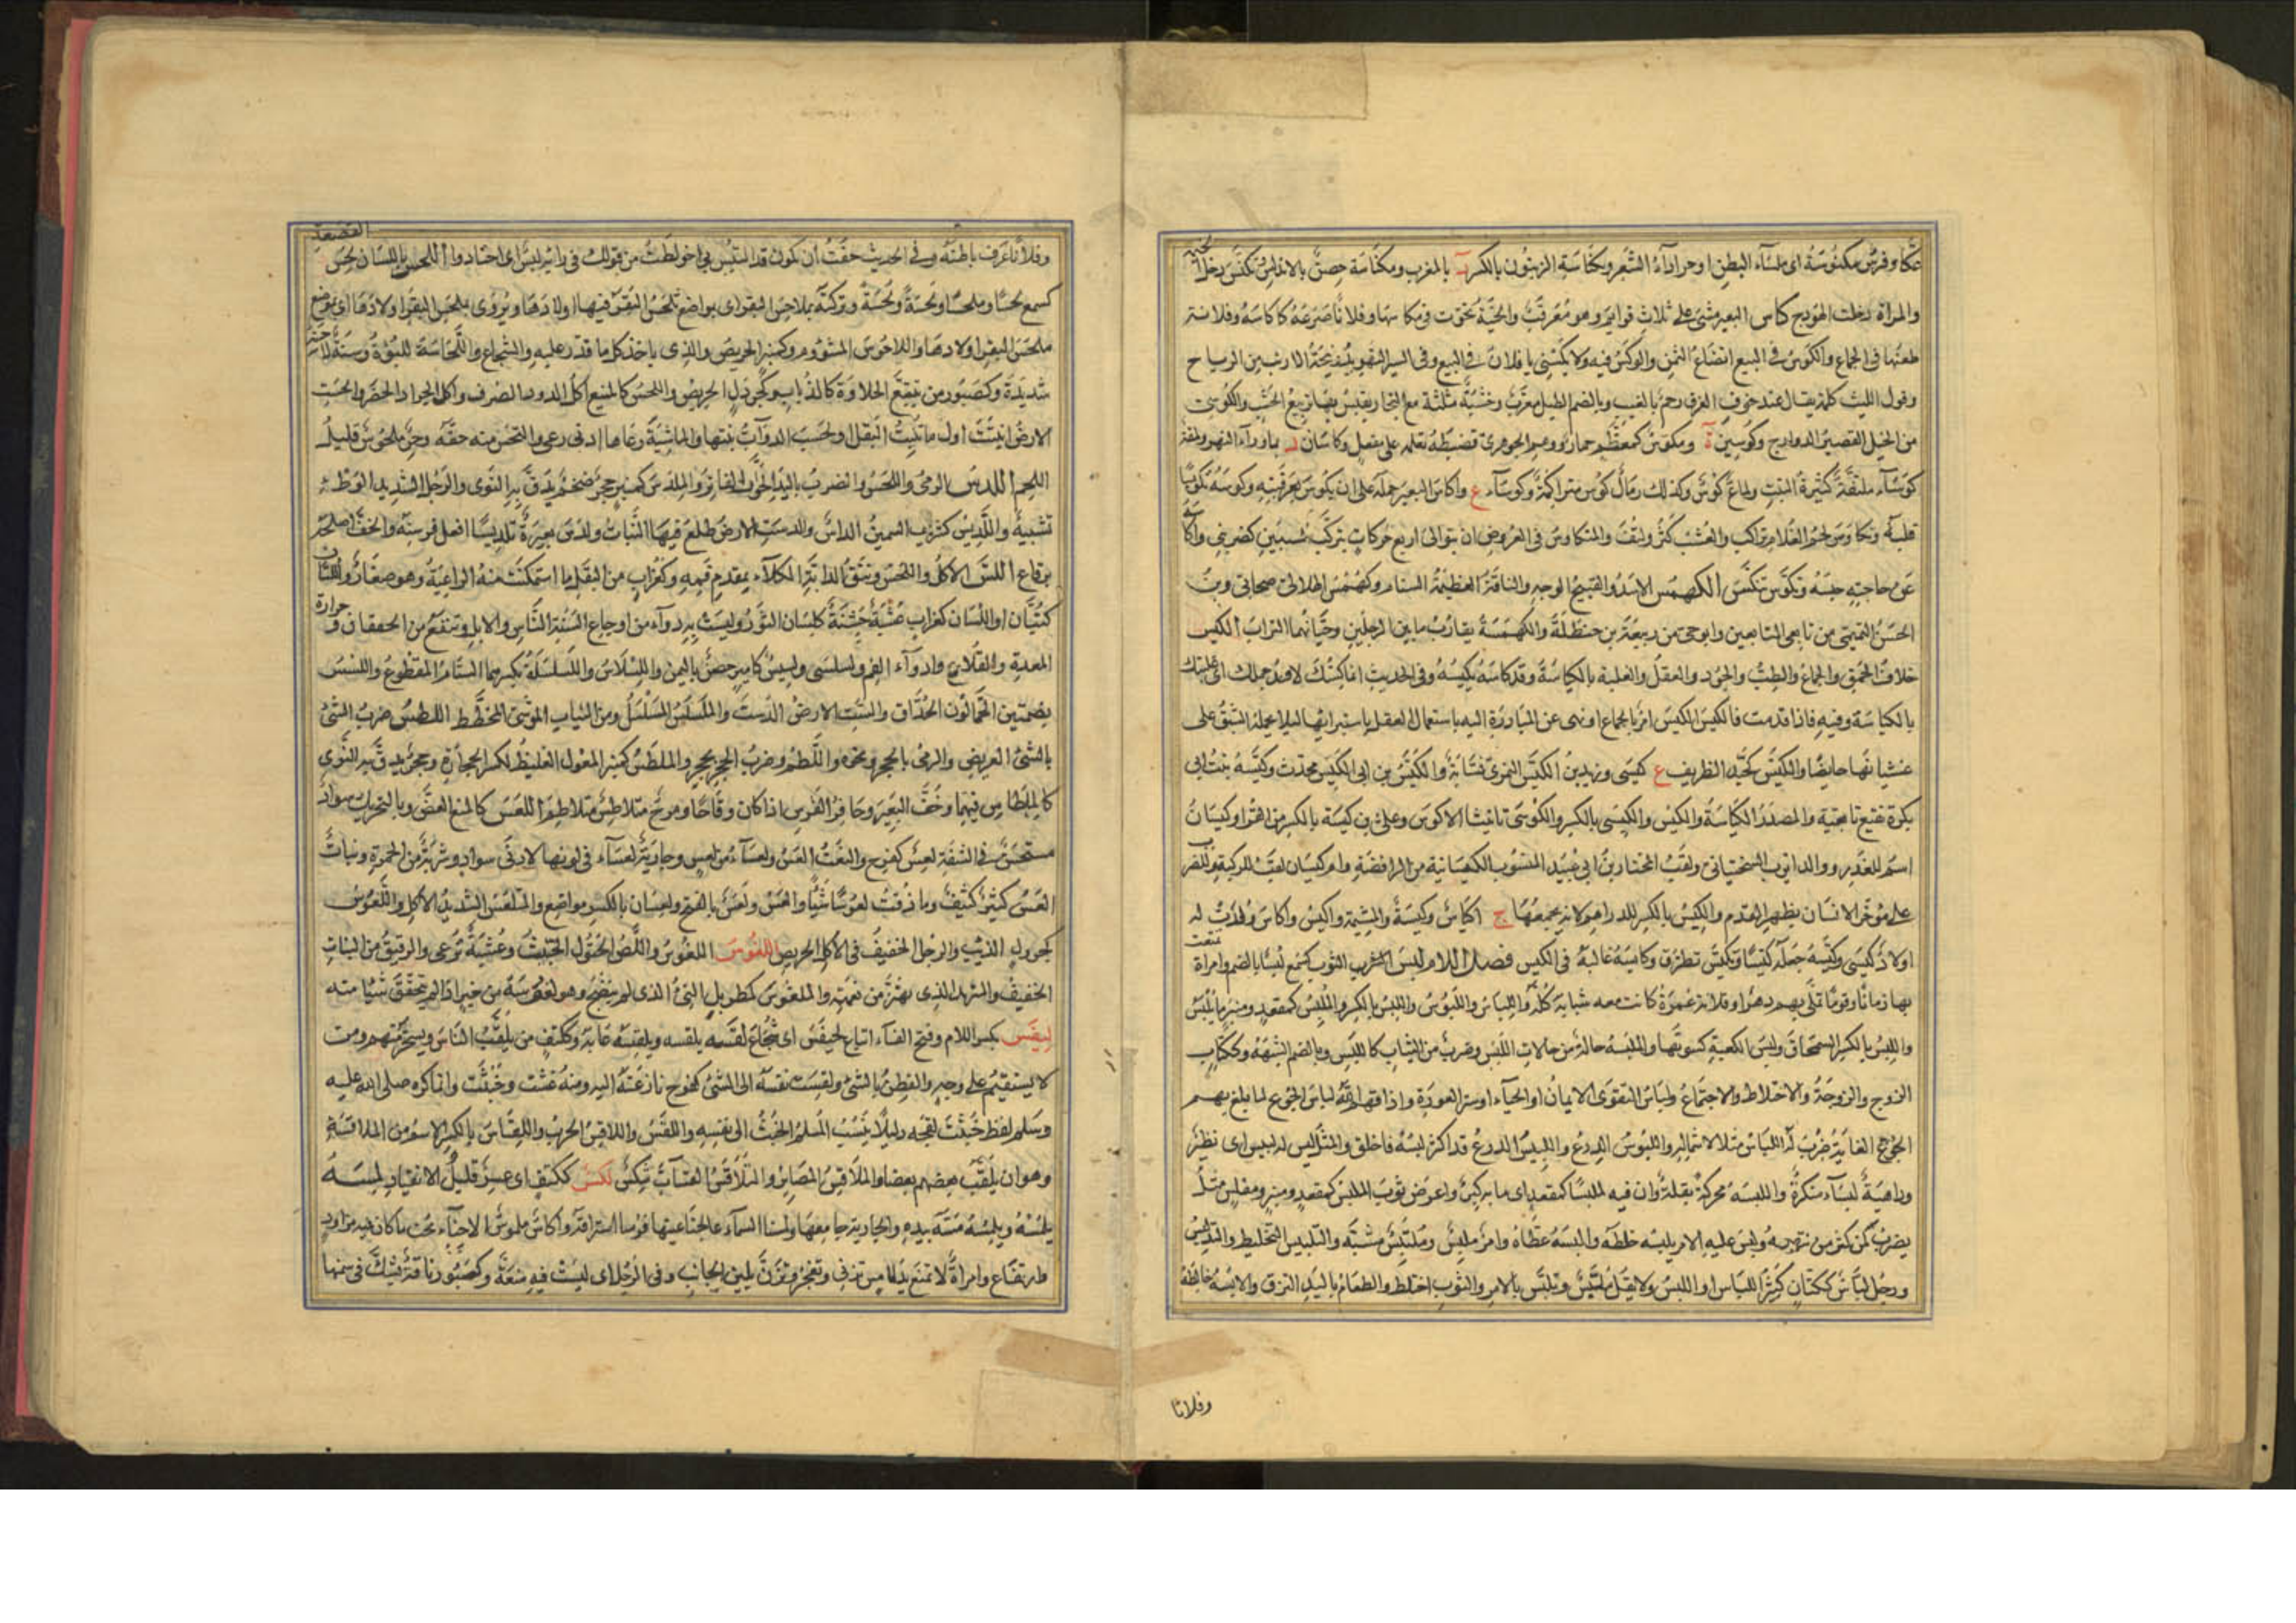 وفرس مكنوسة اى ملساء البطن او جرداء الشعر وكناسة الزيتون بالكسر بالمغرب ومكناسة حصن بالاندلس وتكنس دخل
والمراة دخلت الهودج كاس البعير مشى على ثلاث قوايم وهو معرقب والحية تحوت فى مكاسها وفلانا صرعه كاكاسه وفلانة
طعنها فى الجماع والكوس فى البيع اتضاع الثمن والوكس فيه ولا تكسنى يا فلان فى البيع وفى السير التهويد ونيحة الازيب من الرياح
وقول الليث كلمة يقال عند خوف الغرق رجم بالغيب وبالضم الطبل معرب وخشبة مثلثة مع النجار يقيس بها تربيع الخشب والكوسى
من الخيل القصير الدوارج وكوسين ة ومكوس كمعظم حمار ووهم الجوهرى فضبطه بقلمه على مفعل وكاسان د بما وراء النهر ولمعة
كوساء ملتفة كثيرة النبت ولماع كوس وكذلك رمال كوس متراكمة وكوساء ع واكاس البعير حمله على ان يكوس بعرقبته وكوسه تكويسا
قلبه وتكاوس لحم الغلام تراكب والعشب كثر والتف والمتكاوس فى العروض ان يتوالى اربع حركات بتركب سببين كضربنى واكاسه
عن حاجته حبسه وتكوس تنكس الكهمس الاسد والقبيح الوجه والناقة العظيمة السنام وكهمس الهلالى صحابى وبن
الحسن التميمى من تابعى التابعين وابو حى من ربيعة بن حنظلة والكهمسة تقارب ما بين الرجلين وحثيانهما التراب الكيس
خلاف الحمق والجماع والطب والجود والعقل والغلبة بالكياسة وقد كاسه يكيسه وفى الحديث انما كستك لاخذ جملك اى غلبتك
بالكياسة وفيه فاذا قدمت فالكيس الكيس امر بالجماع او نهى عن المبادرة اليه باستعمال العقل باستبرائها ليلا يحمله الشبق على
غشيانها حايضا والكيس كجيد الظريف ع كيسى وزيد بن الكيس النمرى نسابة والكيس بن ابى الكيس محدث وكيسة بنت ابى
بكرة نفيع تابعية والمصدر الكياسة والكيس والكيسى بالكسر والكوسى تانيثا الاكوس وعلى بن كيسة بالكسر من القراء وكيسان
اسم للغدر ووالد ايوب السختيانى ولقب المختار بن ابى عبيد المنسوب اليه الكيسانية من الرافضة وام كيسان لقب للركبة وللضرب
على موخر الانسان بظهر القدم والكيس بالكسر للدراهم لانه يجمعها ج اكياس وكيسة والمشيمة واكيس واكاس ولدت له
اولاد كيسى وكيسه جعله كيسا وتكيس تظرف وكايسه غالبه فى الكيس فصل اللام لبس الثوب كسمع لبسا بالضم وامراة تمتع
بها زمانا وقوما تملى بهم دهرا وفلانة عمره كانت معه شبابه كله واللباس واللبوس واللبس بالكسر والملبس كمقعد ومنبر ما يلبس
واللبس بالكسر السمحاق ولبس الكعبة كسوتها واللبسة حالة من حالات اللبس وضرب من الثياب كاللبس وبالضم الشبهة وككتاب
الزوج والزوجة والاختلاط والاجتماع ولباس التقوى الايمان او الحياء او ستر العورة واذاقها الله لباس الجوع لما بلغ بهم
الجوع الغاية ضرب له اللباس مثلا لاشتماله واللبوس الدرع واللبيس الدرع قد اكثر لبسه فاخلق والمثل ليس له لبيس اى نظير
وداهية لبساء منكرة واللبسة محركة بقلة وان فيه لملبسا كمقعد اى ما به كبر واعرض ثوب الملبس كمقعد ومنبر ومفلس مثل
يضرب لمن كثر من يتهمه ولبس عليه الامر يلبسه خلطه والبسه غطاه وامر ملبس وملتبس مشبه والتلبيس التخليط والتدليس
ورجل لباس ككتان كثير اللباس او اللبس ولا تقل ملبس وتلبس بالامر والثوب اختلط والطعام باليد التزق ولابسه خالطه
وفلانا
وفلانا عرف باطنه وفى الحديث خفت ان يكون قد التبس بى اى خولطت من قولك فى رايه لبس اى اختلاط اللحس باللسان لحس القصعة
كسمع لحسا وملحسا ولحسة ولحسة وتركته بملاحس البقر اى بمواضع تلحس البقر فيها اولادها ويروى بملحس البقر اولادها اى بموضع
ملحس البقر اولادها واللاحوس المشؤوم وكمنبر الحريص والذى ياخذ كل ما قدر عليه والشجاع واللحاسة اللبوة وسنة لاحسة
شديدة وكصبور من يتتبع الحلاوة كالذباب وكجرول الحريص واللحس كالمنع اكل الدود الصوف واكل الجراد الخضر والحست
الارض انبتت اول ما تنبت البقل او لحسب الدواب نبتها والماشية رعاها ادنى رعى والتحس منه حقه وحز ملحوس قليل
اللحم اللدس الرمى واللحس والضرب باليد الخوالخفاف والملدس كمنبر حجر ضخم يدق به النوى والرجل الشديد الوطء
تشبيه واللديس كثريب السمين الداس والدست الارض طلع فيها النبات ولدس بعيره تلديسا انعل فرسنه والخف اصلحه
برقاع اللس الاكل واللحس ونتف الدابة الكلاء بمقدم فيها وكغراب من البقل ما استمكنت منه الراعية وهو صغار واللسان
كتيان او اللسان كغراب عشبة خشنة كلسان الثور وليست به دواء من اوجاع السنة الناس والابل وتنفع من الخفقان وحرارة
المعدة والقلاع وادواء الفم ولسلسى ولسيس كامير حصن باليمن واللسلاس واللسلسة بكسرهما السنام المقطوع واللسس
بضمتين الحمالون الحذاق والست الارض الدست والملسلس السلسل ومن الثياب الموشى المخطط اللطس ضرب الشئ
بالشئ العريض والرمى بالحجر ونحوه واللطم وضرب الحجر بحجر والملطس كمنبر المعول الغليظ لكسر الحجارة وحجر يدق به النوى
كالملطاس فيهما وخف البعير وحافر الفرس اذا كان وقاحا وموج متلاطس متلاطم اللعس كالمنع العض وبالتحريك سواد
مستحسن فى الشفة لعس كفرح والنعت العس ولعساء من لعس وجارية لعساء فى لونها ادنى سواد وشربة من الحمرة ونبات
العس كثير كثيف وما ذقت لعوسا شيا والعس ولعس بالفتح ولعسان بالكسر مواضع والمتلعس الشديد الاكل واللعوس
كجرول الذيب والرجل الخفيف فى الاكل الحريص اللغوس اللغوس واللص الختول الخبيث وعشبة ترعى والرقيق من النبات
الخفيف والشره الذى نهزة من نهمته والملغوس كمطربل النئ الذى لم ينضج وهو لغوسة من خبر اذا لم تتحقق شيا منه
ليفس بكسر اللام وفتح الفاء اتباع لحيفس اى شجاع لقسه يلقسه ويلقسه عابه وككتف من يلقب الناس ويسخر منهم ومن
لا يستقيم على وجه والفطن بالشئ ولقست نفسه الى الشئ كفرح نازعته اليه ومنه غثت وخبثت وانما كره صلى الله عليه
وسلم لفظ خبثت لقبحه وليلا ينسب المسلم الخبث الى نفسه واللقس واللاقس الحرب واللقاس بالكسر الاسم من الملاقسة
وهو ان يلقب بعضهم بعضا والملاقس المصابر والتلاقس التساب شكس لكس ككتف اى عسر قليل الانقياد لمسه
يلمسه ويلمسه مسه بيده والجارية جامعها ولمسنا السماء عالجنا غيبها فرمنا استراقه واكاف ملموس الاحناء نحت ما كان فيه من اود
وارتفاع وامراة لا تمنع يد لامس تزنى وتفجر وتزن بلين الجانب وفى الرجل اى ليست فيه منعة وكصبور ناقة شك فى سمنها